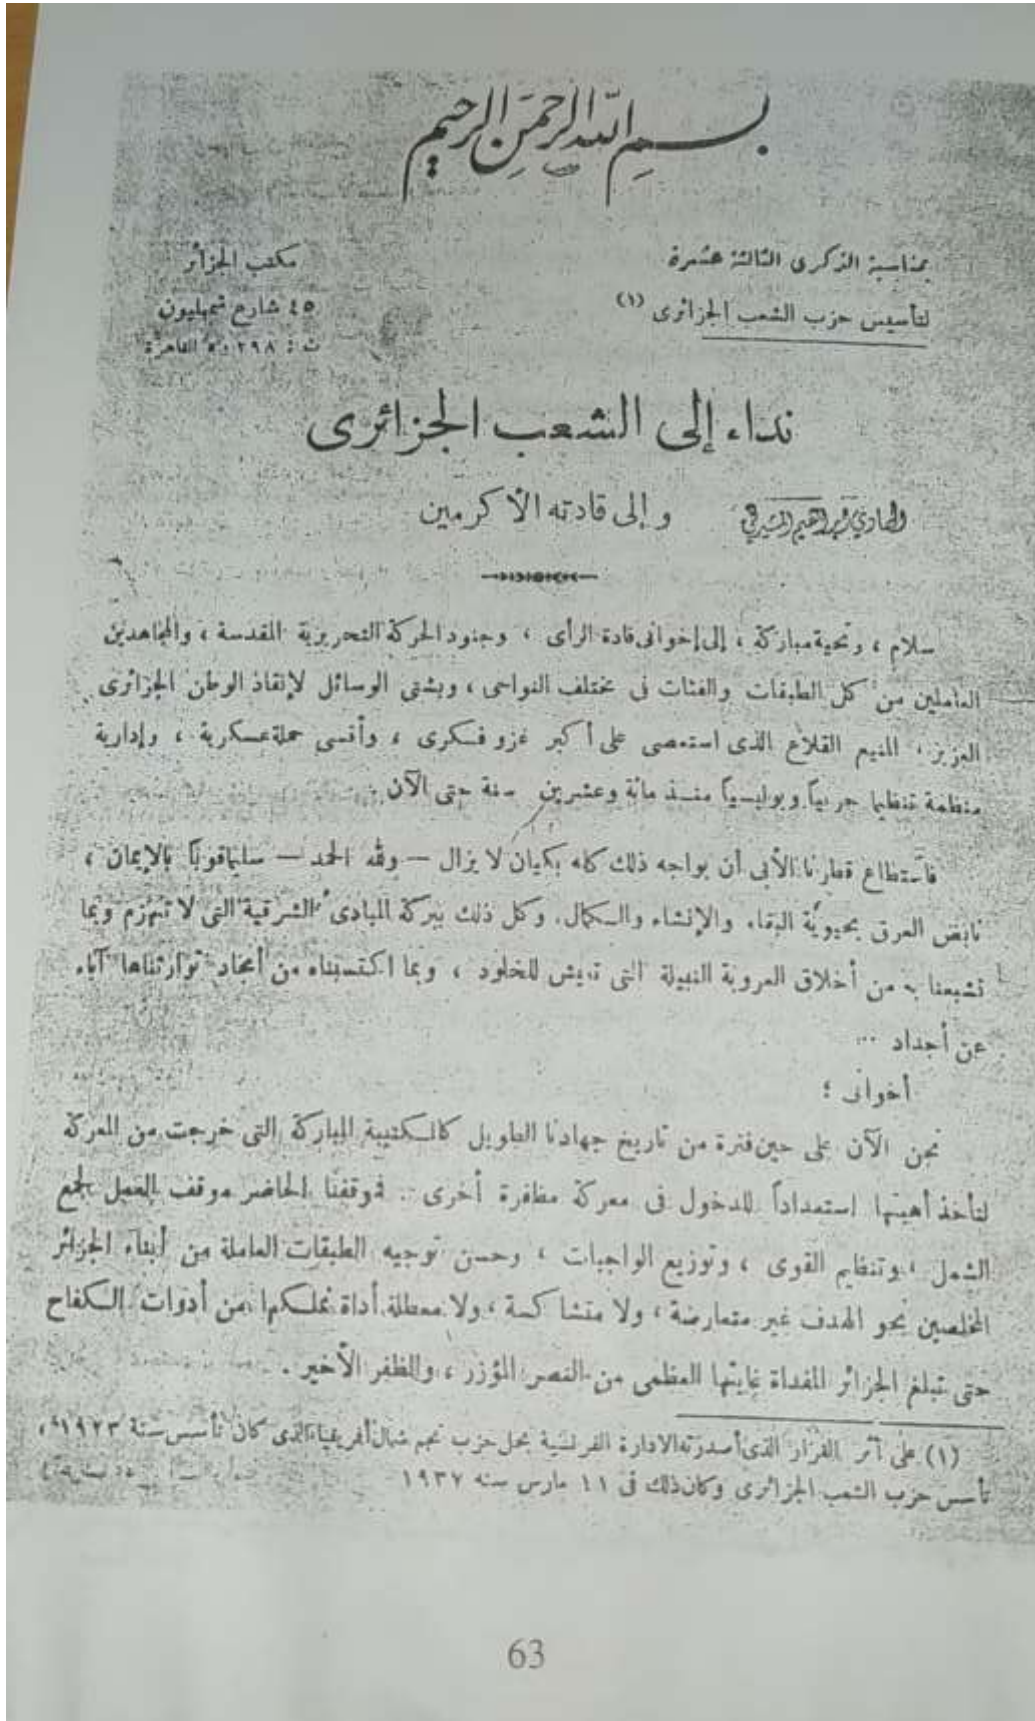 بسم الله الرحمن الرحيم
بمناسبة الذكرى الثالثة عشرة
لتأسيس حزب الشعب الجزائرى (١)
مكتب الجزائر
٤٥ شارع شمبليون
ت : القاهرة
نداء إلى الشعب الجزائرى
وإلى قادته الأكرمين
سلام ، وتحية مباركة ، إلى إخوانى قادة الرأى ، وجنود الحركة التحريرية المقدسة ، والمجاهدين
العاملين من كل الطبقات والفئات فى مختلف النواحى ، وبشتى الوسائل لإنقاذ الوطن الجزائرى
العزيز ، المنيع القلاع الذى استعصى على أكبر غزو فكرى ، وأقسى حملة عسكرية ، وإدارية
منظمة تنظيما حربياً وبوليسياً منذ مائة وعشرين سنة حتى الآن .
فاستطاع قطرنا الأبى أن يواجه ذلك كله بكيان لا يزال — ولله الحمد — سليما قوياً بالإيمان ،
نابض العرق بحيوية البقاء والإنشاء والكمال. وكل ذلك ببركة المبادئ الشرقية التى لا تنهزم وبما
تشبعنا به من أخلاق العروبة النبيلة التى تعيش للخلود ، وبما اكتسبناه من أمجاد توارثناها آباء
عن أجداد ..
أخوانى ؛
نحن الآن على حين فترة من تاريخ جهادنا الطويل كالكتيبة المباركة التى خرجت من المعركة
لتأخذ أهبتها استعداداً للدخول فى معركة مظفرة أخرى .. فموقفنا الحاضر موقف العمل لجمع
الشمل ، وتنظيم القوى ، وتوزيع الواجبات ، وحسن توجيه الطبقات العاملة من أبناء الجزائر
المخلصين نحو الهدف غير متعارضة ، ولا متشاكسة ، ولا معطلة أداة نملكها من أدوات الكفاح
حتى تبلغ الجزائر المفداة غايتها العظمى من النصر المؤزر ، والظفر الأخير .
(١) على أثر القرار الذى أصدرته الادارة الفرنسية بحل حزب نجم شمال أفريقيا الذى كان تأسس سنة ١٩٢٣ ،
تأسس حزب الشعب الجزائرى وكان ذلك فى ١١ مارس سنه ١٩٣٧
63